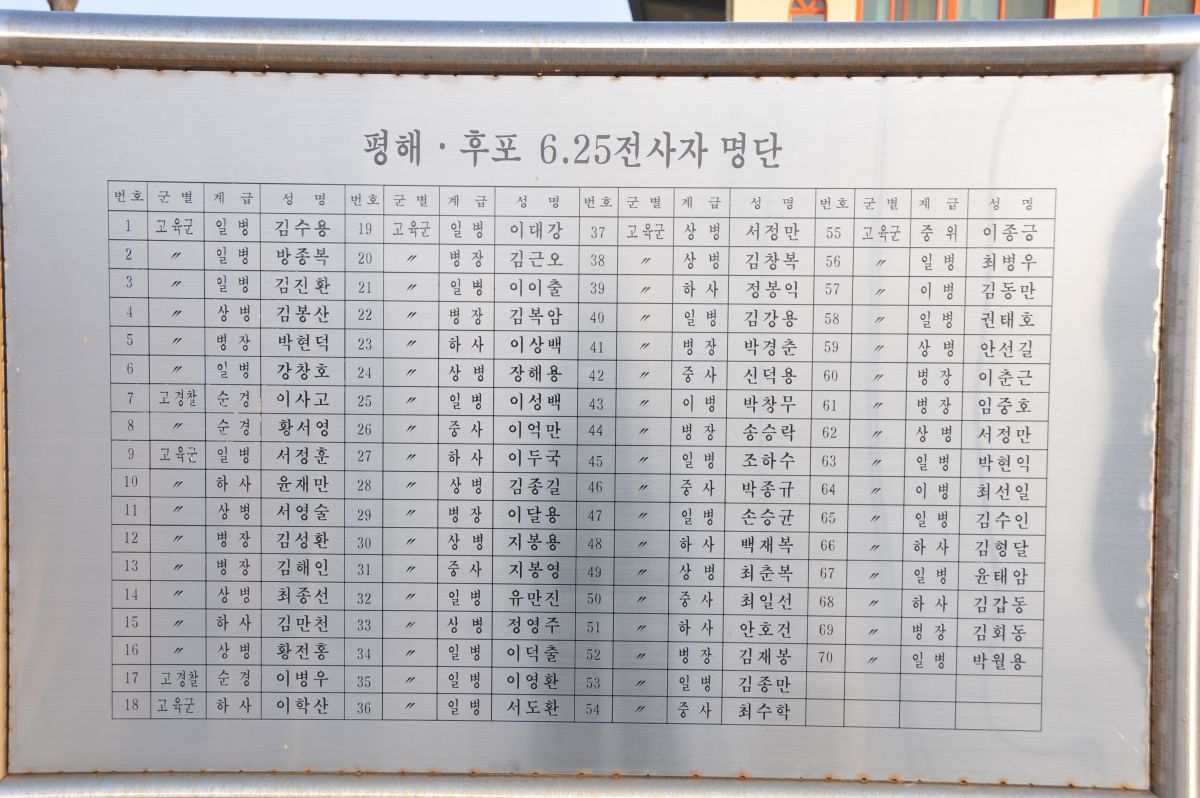 평해 · 후포 6.25전사자 명단
번호 군별 계급 성명 번호 군별 계급 성명 번호 군별 계급 성명 번호 군별 계급 성명
1 고육군 일병 김수용 19 고육군 일병 이대강 37 고육군 상병 서정만 55 고육군 중위 이종긍
2 〃 일병 방종복 20 〃 병장 김근오 38 〃 상병 김창복 56 〃 일병 최병우
3 〃 일병 김진환 21 〃 일병 이이출 39 〃 하사 정봉익 57 〃 이병 김동만
4 〃 상병 김봉산 22 〃 병장 김복암 40 〃 일병 김강용 58 〃 일병 권태호
5 〃 병장 박현덕 23 〃 하사 이상백 41 〃 병장 박경춘 59 〃 상병 안선길
6 〃 일병 강창호 24 〃 상병 장해용 42 〃 중사 신덕용 60 〃 병장 이춘근
7 고경찰 순경 이사고 25 〃 일병 이성백 43 〃 이병 박창무 61 〃 병장 임중호
8 〃 순경 황서영 26 〃 중사 이억만 44 〃 병장 송승락 62 〃 상병 서정만
9 고육군 일병 서정훈 27 〃 하사 이두국 45 〃 일병 조하수 63 〃 일병 박현익
10 〃 하사 윤재만 28 〃 상병 김종길 46 〃 중사 박종규 64 〃 이병 최선일
11 〃 상병 서영술 29 〃 병장 이달용 47 〃 일병 손승균 65 〃 일병 김수인
12 〃 병장 김성환 30 〃 상병 지봉용 48 〃 하사 백재복 66 〃 하사 김형달
13 〃 병장 김해인 31 〃 중사 지봉영 49 〃 상병 최춘복 67 〃 일병 윤태암
14 〃 상병 최종선 32 〃 일병 유만진 50 〃 중사 최일선 68 〃 하사 김갑동
15 〃 하사 김만천 33 〃 상병 정영주 51 〃 하사 안호건 69 〃 병장 김회동
16 〃 상병 황전홍 34 〃 일병 이덕출 52 〃 병장 김재봉 70 〃 일병 박월용
17 고경찰 순경 이병우 35 〃 일병 이영환 53 〃 일병 김종만
18 고육군 하사 이학산 36 〃 일병 서도환 54 〃 중사 최수학